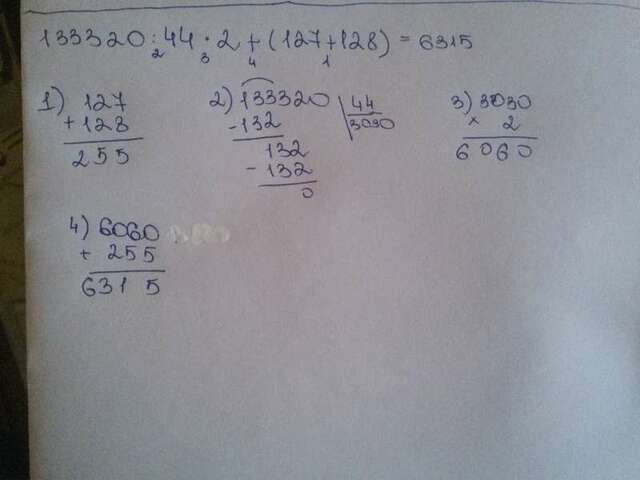 133320:44·2+(127+128)=6315
2 3 4 1
1) 127
+128
255
2) 133320 | 44
-132 3030
132
-132
0
3) 3030
× 2
6060
4) 6060
+ 255
6315